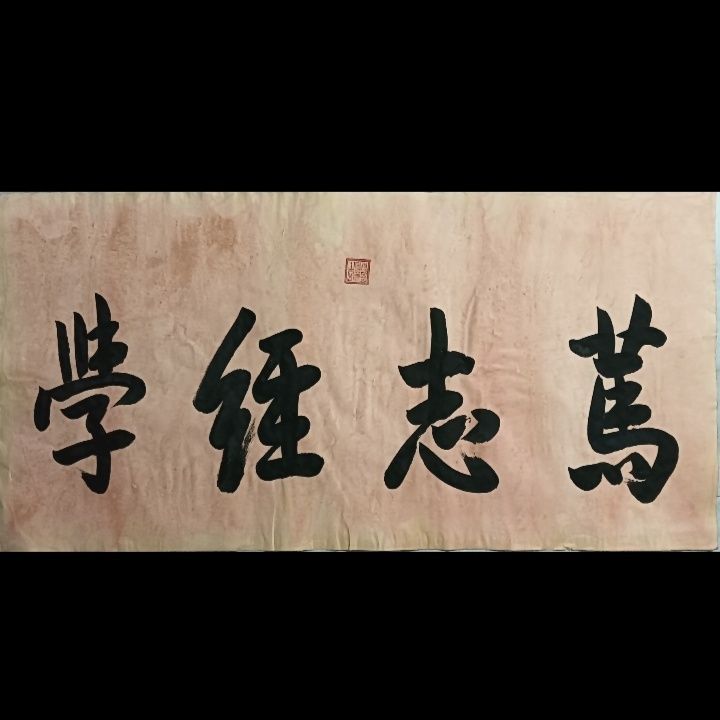 篤志經學